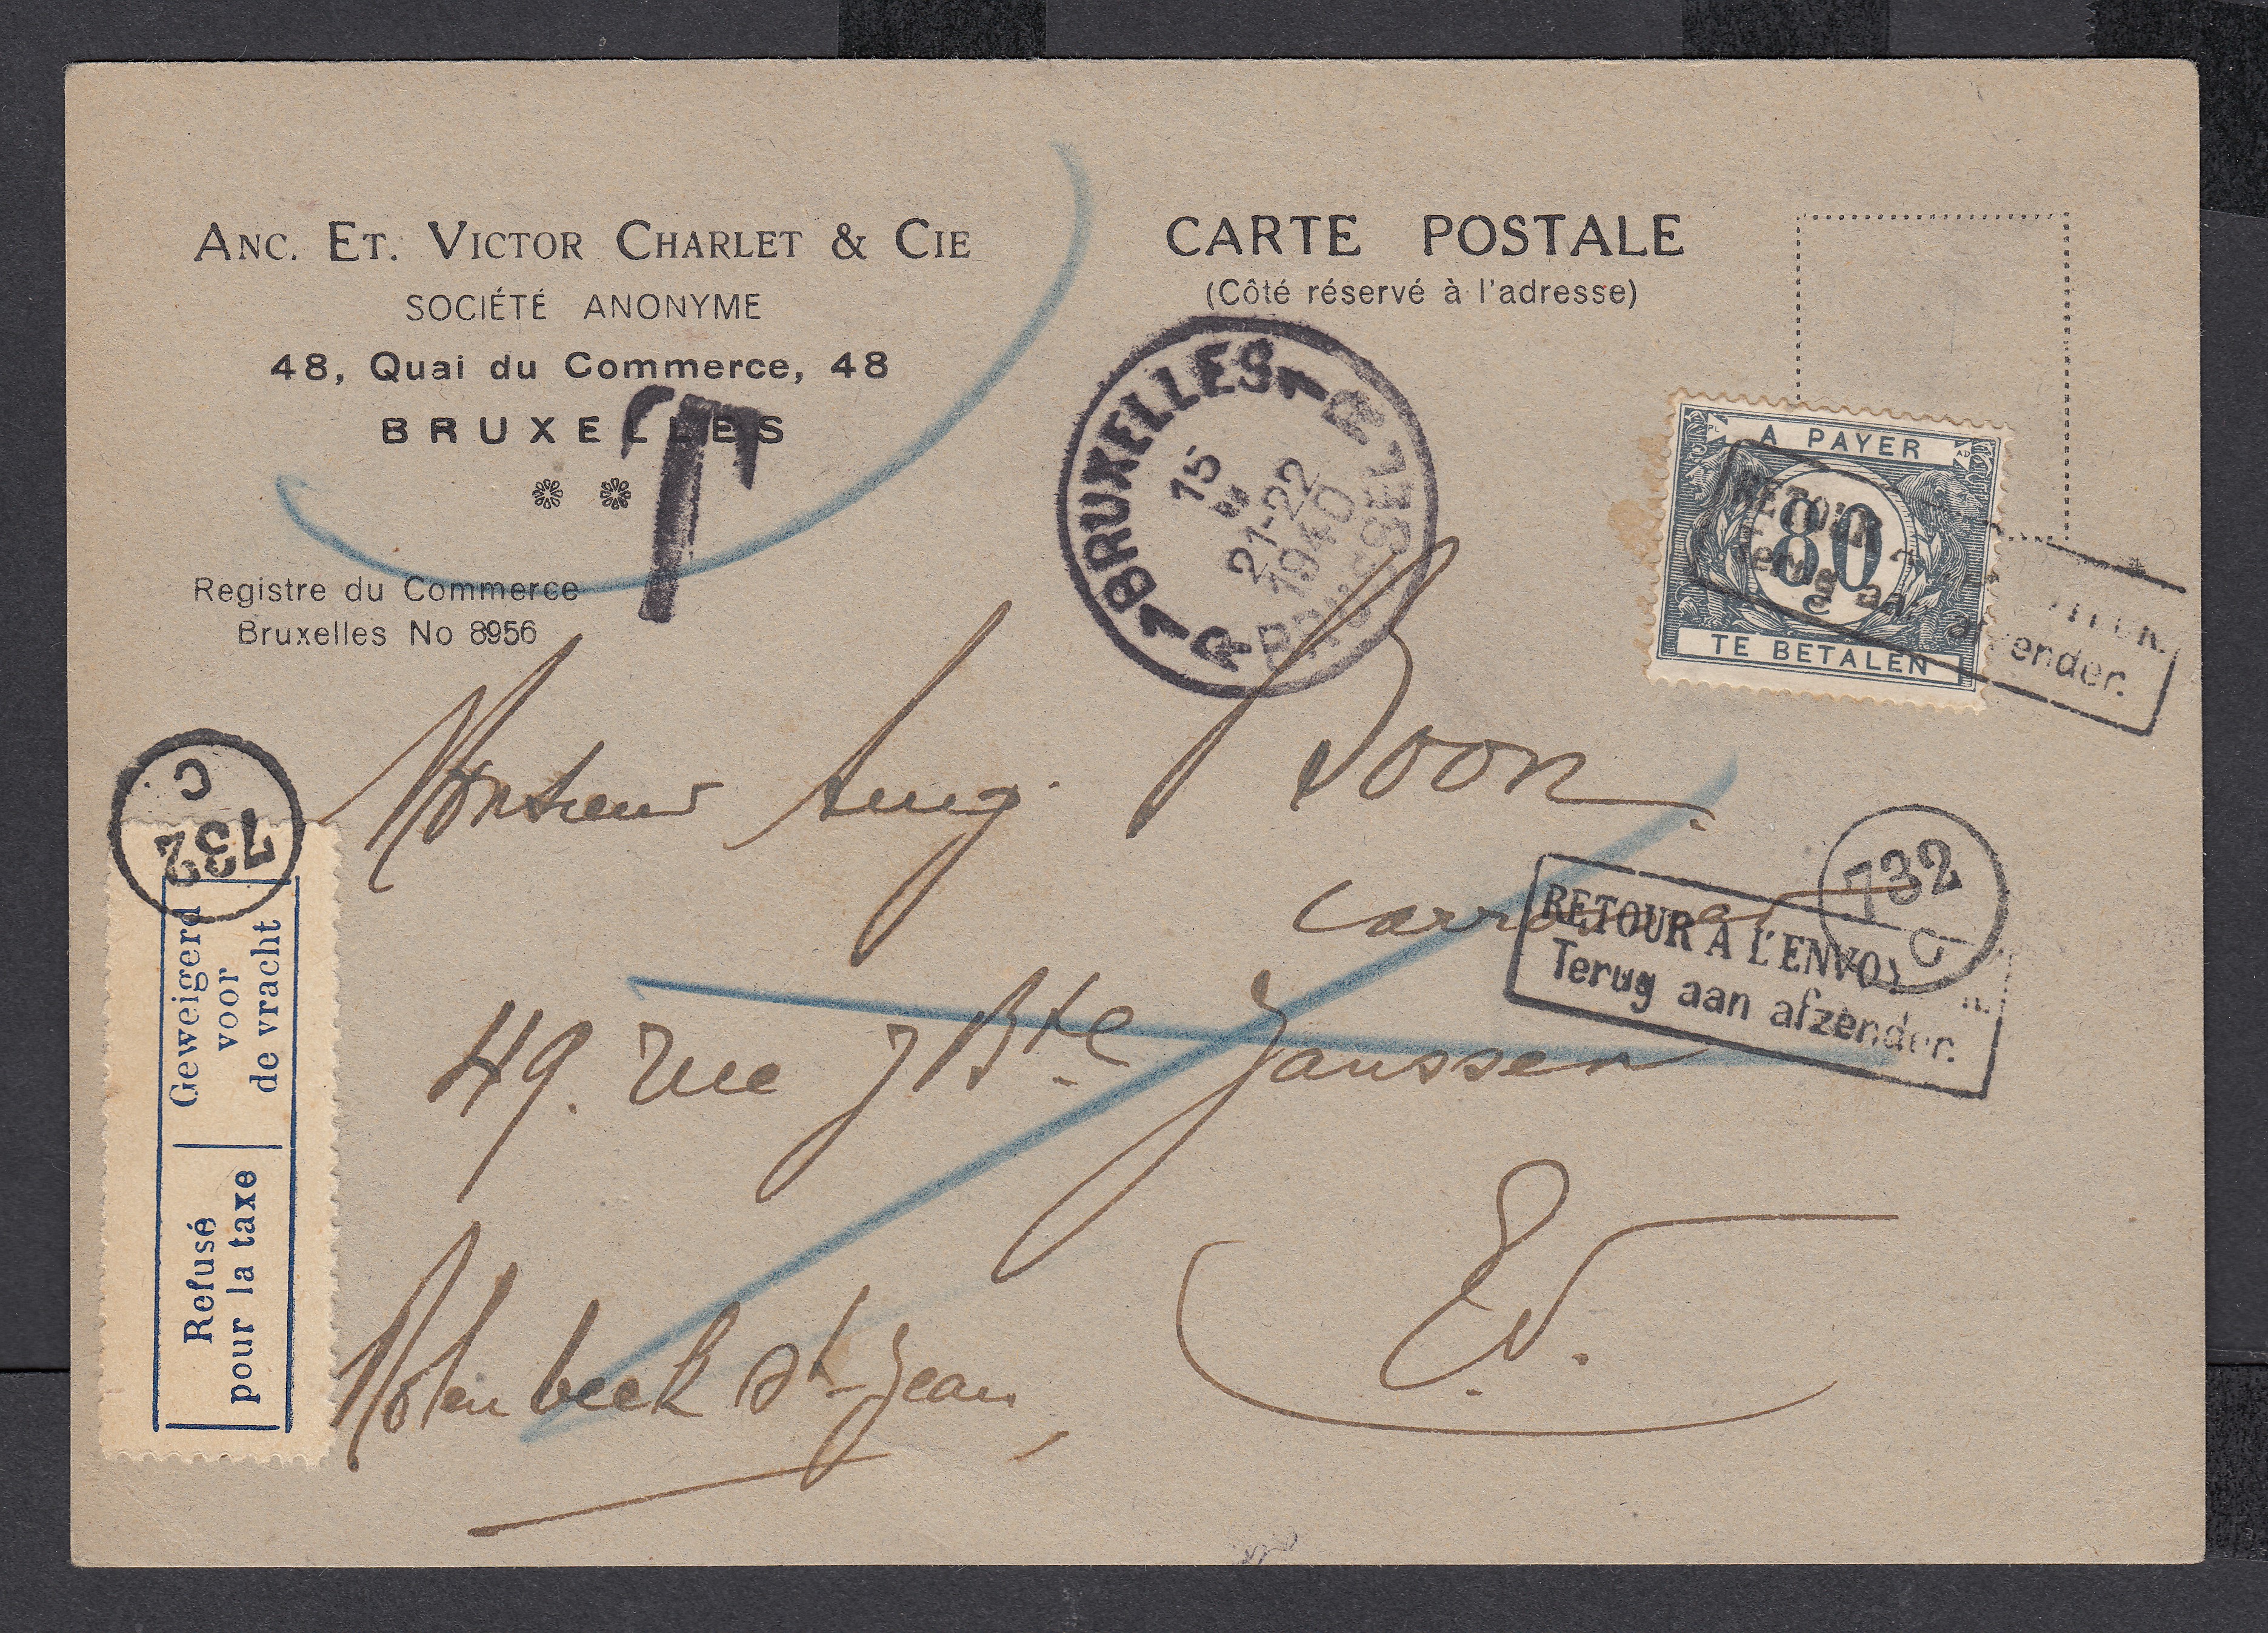 ANC. ET. VICTOR CHARLET & CIE
SOCIÉTÉ ANONYME
48, Quai du Commerce, 48
BRUXELLES
T
Registre du Commerce
Bruxelles No 8956
CARTE POSTALE
(Côté réservé à l'adresse)
1 BRUXELLES 1
BRUSSEL
15
21-22
1940
A PAYER
80
c
TE BETALEN
RETOUR
Terug aan afzender.
Monsieur Aug. Boon
732
C
RETOUR A L'ENVO
Terug aan afzender.
732
C
49. rue J Bte Janssen
Molenbeek St-Jean
E.V.
Geweigerd
voor
de vracht
Refusé
pour la taxe